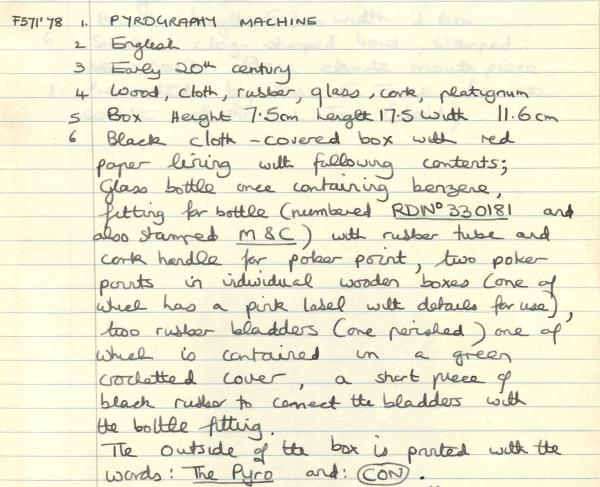 F571'78 1. PYROGRAPHY MACHINE
2 English
3 Early 20th century
4 Wood, cloth, rubber, glass, cork, platignum
5 Box Height 7.5cm Length 17.5 Width 11.6cm
6 Black cloth-covered box with red
paper lining with following contents;
Glass bottle once containing benzene,
fitting for bottle (numbered RDNo 330181 and
also stamped M&C) with rubber tube and
cork handle for poker point, two poker
points in individual wooden boxes (one of
which has a pink label with details for use),
two rubber bladders (one perished) one of
which is contained in a green
crochetted cover, a short piece of
black rubber to connect the bladders with
the bottle fitting.
The outside of the box is printed with the
words: The Pyro and: CON.